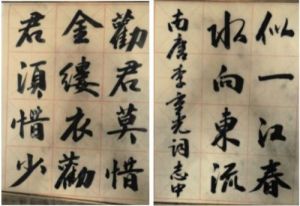 勸君莫惜
金縷衣勸
君須惜少
似一江春
水向東流
南唐李重光詞志中